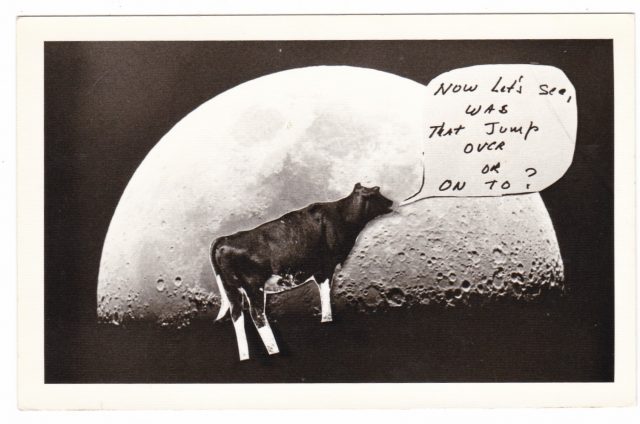 Now Let's See,
WAS
THAT Jump
OVER
OR
ON TO?